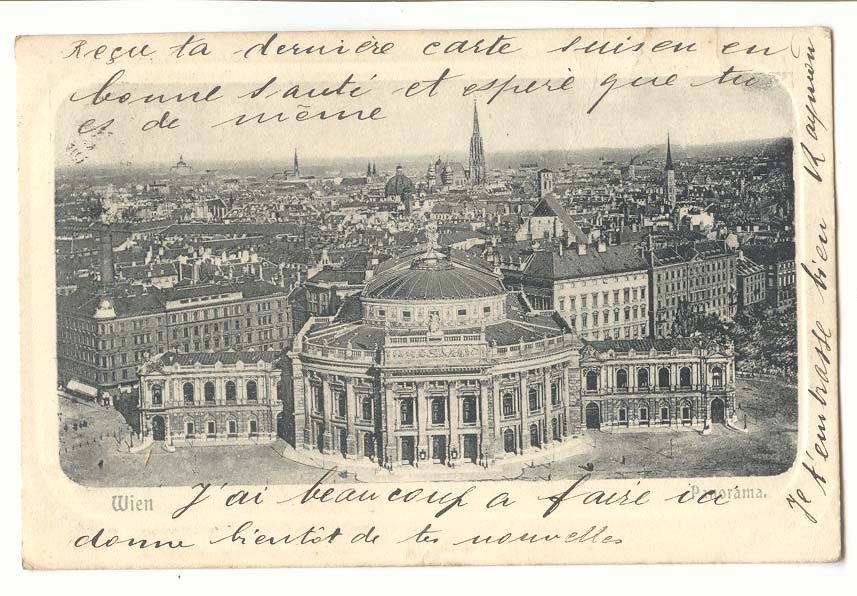 Reçu ta dernière carte suisen en
bonne Santé et espère que tu
es de même
Wien
Panorama.
J'ai beaucoup a faire ici
donne bientôt de tes nouvelles
Je t'embrasse bien Raymond